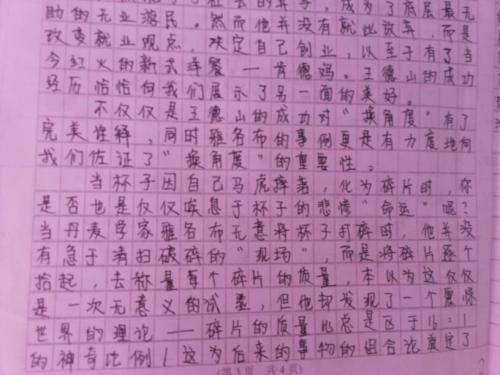 助的无业游民。然而他并没有就此放弃，而是
改变就业观点，决定自己创业，以至于有了当
今红火的新式连餐——肯德妈。王德山的成功
经历恰恰向我们展示了另一面的美好。
不仅仅是王德山的成功对“换角度”有了
完美诠释，同时雅各布的事例更是有力度地向
我们佐证了“换角度”的重要性。
当杯子因自己马虎摔着，化为碎片时，你
是否也是仅仅唉息于杯子的悲惨“命运”呢？
当丹麦学家雅各布无意将杯子打碎时，他并没
有急于清扫破碎的“现场”，而是将碎片逐个
拾起，去称量每个碎片的质量，本以为这仅仅
是一次无意义的试量，但他却发现了一个震惊
世界的理论——碎片的质量比总是区于16=1
的神奇比例！这为后来的事物的组合论奠定了
（第3页 共4页）